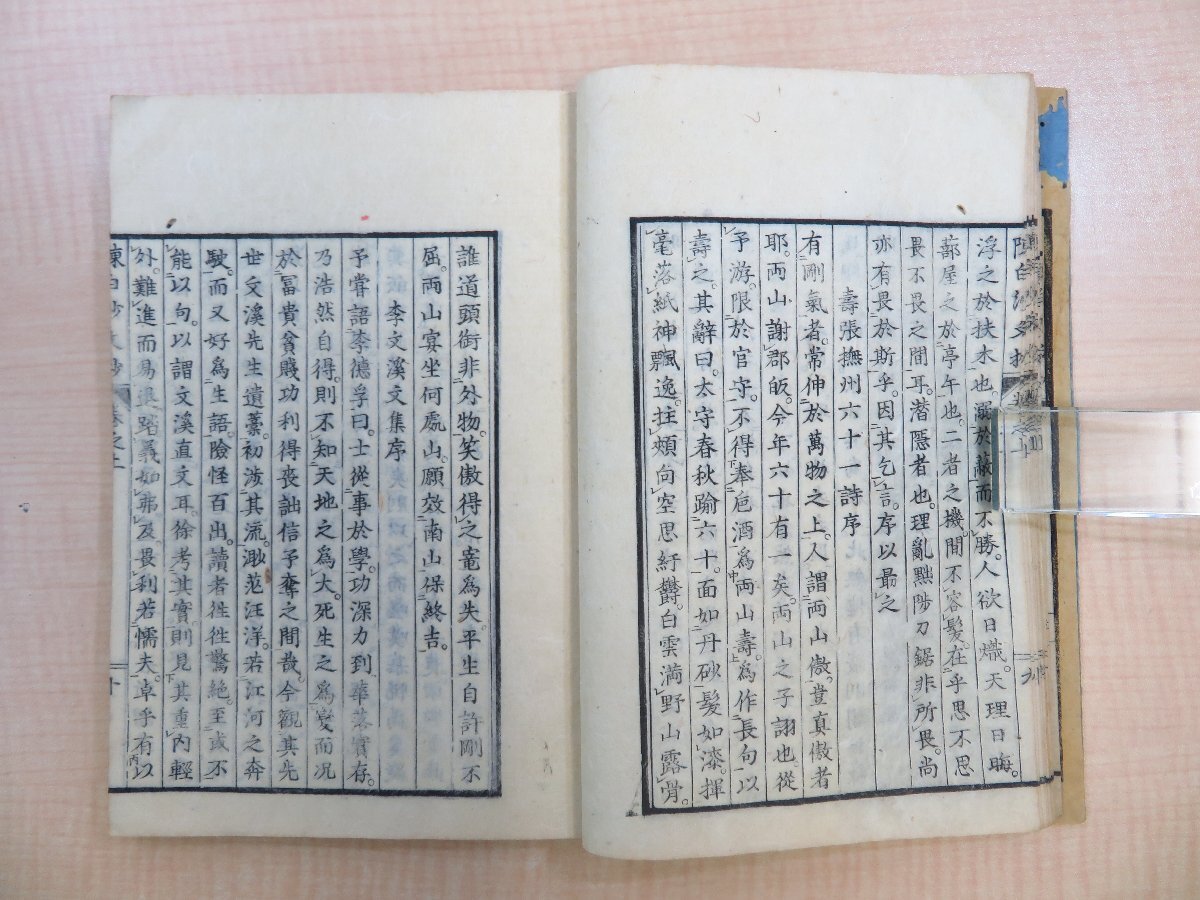 浮之於扶木也溺於蔽而不勝。人欲日熾。天理日晦。
蔀屋之於亭午也。二者之機間不容髮。在乎思不思
畏不畏之間耳。潛隱者也。理亂黜陟刀鋸非所畏。尚
亦有畏於斯乎。因其乞言。序以最之
壽張撫州六十一詩序
有剛氣者。常伸於萬物之上。人謂両山傲。豈真傲者
耶。両山謝郡皈。今年六十有一矣。両山之子詡也從
予游。限於官守。不得奉巵酒為両山壽。為作長句以
壽之。其辭曰。太守春秋踰六十。面如丹砂髮如漆。揮
毫落紙神飄逸。拄頰向空思紆欝。白雲満野山露骨。
誰道頭銜非外物。笑傲得之竉為失。平生自許剛不
屈。両山㝠坐何處山。願效南山保終吉。
李文溪文集序
予嘗語李德孚曰。士從事於學。功深力到。華落實存。
乃浩然自得。則不知天地之為大。死生之為變。而况
於冨貴貧賤功利得丧詘信予奪之間哉。今觀其先
世文溪先生遺藁。初涉其流。渺茫汪洋。若江河之奔
駛。而又好為生語。險怪百出。讀者徃徃驚絶。至或不
能以句。以謂文溪直文耳。徐考其實。則見其重内輕
外。難進而易退。蹈義如弗及。畏利若懦夫。卓乎有以
陳白沙文抄
卷之上
十